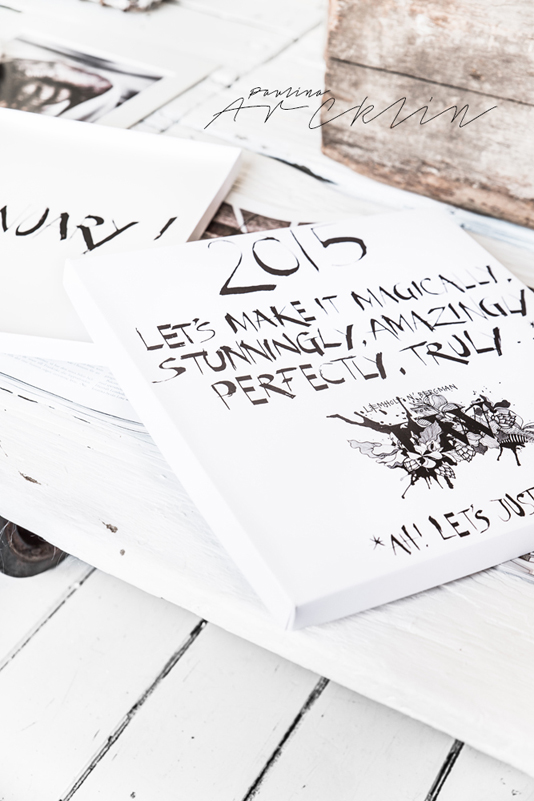 Paulina
Arcklin
2015
LET'S MAKE IT MAGICALLY,
STUNNINGLY, AMAZINGLY
PERFECTLY, TRULY
*AH! LET'S JUST